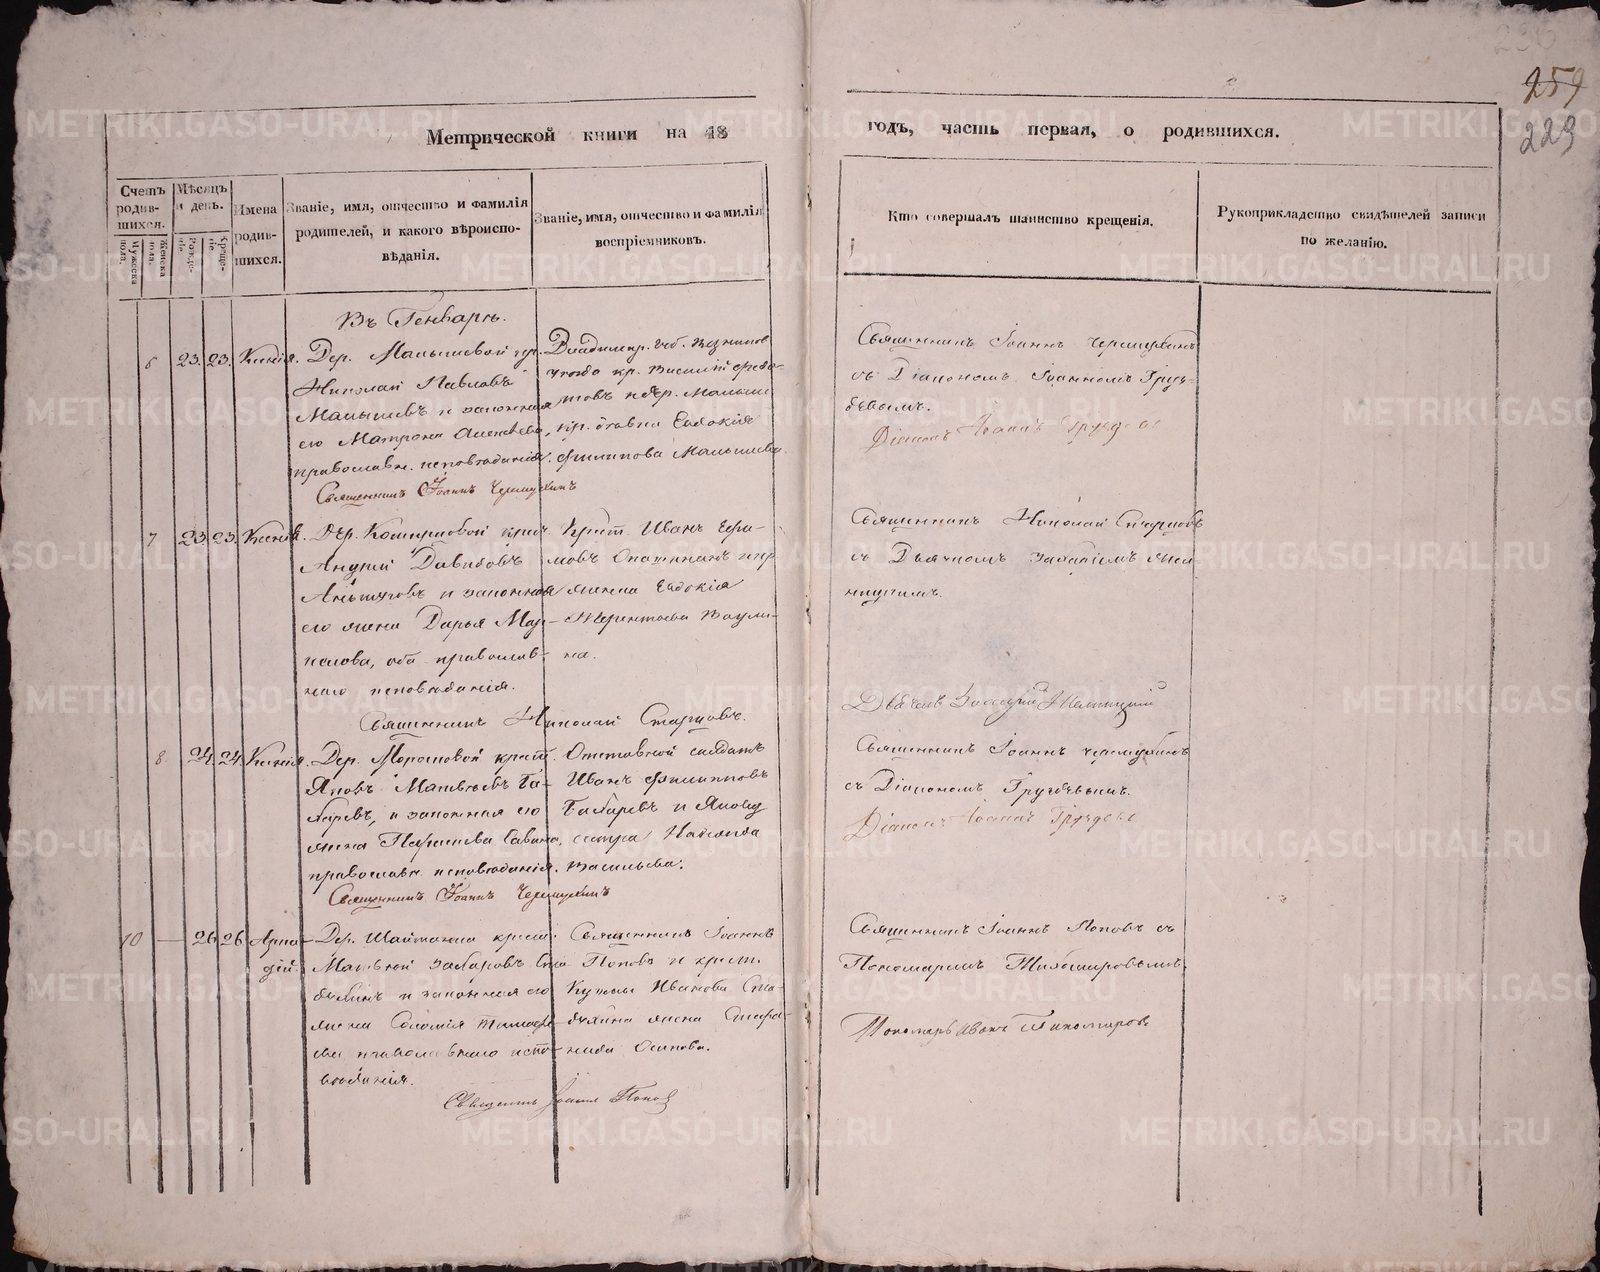 259
229
Метрической книги на 18
годъ, часть первая, о родившихся.
Счетъ родив-шихся.
Мужеска пола.
Женска пола.
Мѣсяцъ и день.
Рожде-нія.
Креще-нія.
Имена родив-шихся.
Званіе, имя, отчество и фамилія
родителей, и какого вѣроиспо-
вѣданія.
Званіе, имя, отчество и фамилія
воспріемниковъ.
Кто совершалъ таинство крещенія.
Рукоприкладство свидѣтелей записи
по желанію.
Въ Генварѣ.
6 23. 23. Ксенія.
Дер. Малышевой кр.
Николай Павловъ
Малышевъ и законная
его Матрона Алексѣева,
православн. исповѣданія.
Священникъ Іоаннъ Черемухинъ
Владимир. губ. Вязников
уѣзда кр. Василій Ѳедо-
товъ и дер. Малыш
кр. Евдокія
Филиппова Малышева.
Священникъ Іоаннъ Черемухинъ
съ Діакономъ Іоанномъ Груз-
девымъ.
Діаконъ Іоаннъ Груздевъ
7 23. 23. Ксенія.
Дер. крест
Андрей Давидовъ
и законная
его жена Дарья Мар-
келова, оба православ-
наго исповѣданія.
Священникъ Николай Старцовъ.
Крест. Иванъ Ефи-
мовъ и кр
женка Евдокія
Терентьева Ваули-
на.
Священникъ Николай Старцовъ
съ Дьячкомъ
8 24. 24. Ксенія.
Дер. Морошовой крест.
Яковъ Матвѣевъ Ба-
баревъ, и законная его
жена Савина,
православн. исповѣданія.
Священникъ Іоаннъ Черемухинъ
Отставной солдатъ
Иванъ Филипповъ
Бабаревъ и Якову
сестра Надежда
Васильева.
Священникъ Іоаннъ Черемухинъ
съ Діакономъ Груздевымъ.
Діаконъ Іоаннъ Груздевъ
10 — 26 26 Арка-
дій.
Дер. Шайтанка крест.
Матвѣй Захаровъ Ста-
бухинъ и законная его
жена Соломія Тимофе-
ева православнаго испо-
вѣданія.
Священникъ Іоаннъ Поповъ
Священникъ Іоаннъ
Поповъ и крест.
Кузмы Иванова Ста-
бухина жена Стефа-
нида Осипова.
Священникъ Іоаннъ Поповъ съ
Пономаремъ Тихомировымъ.
Пономарь Иванъ Тихомировъ
METRIKI.GASO-URAL.RU